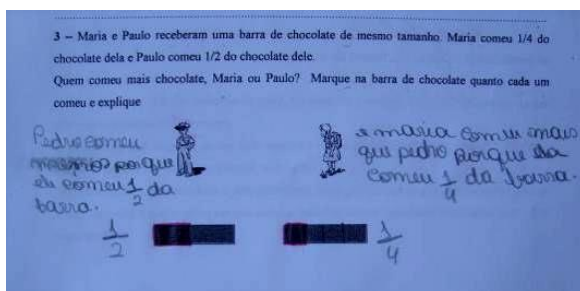 3 – Maria e Paulo receberam uma barra de chocolate de mesmo tamanho. Maria comeu 1/4 do
chocolate dela e Paulo comeu 1/2 do chocolate dele.
Quem comeu mais chocolate, Maria ou Paulo? Marque na barra de chocolate quanto cada um
comeu e explique
Pedro comeu
porque
ele comeu 1/2 da
barra.
e maria comeu mais
que pedro porque ela
comeu 1/4 da barra.
1/2
1/4